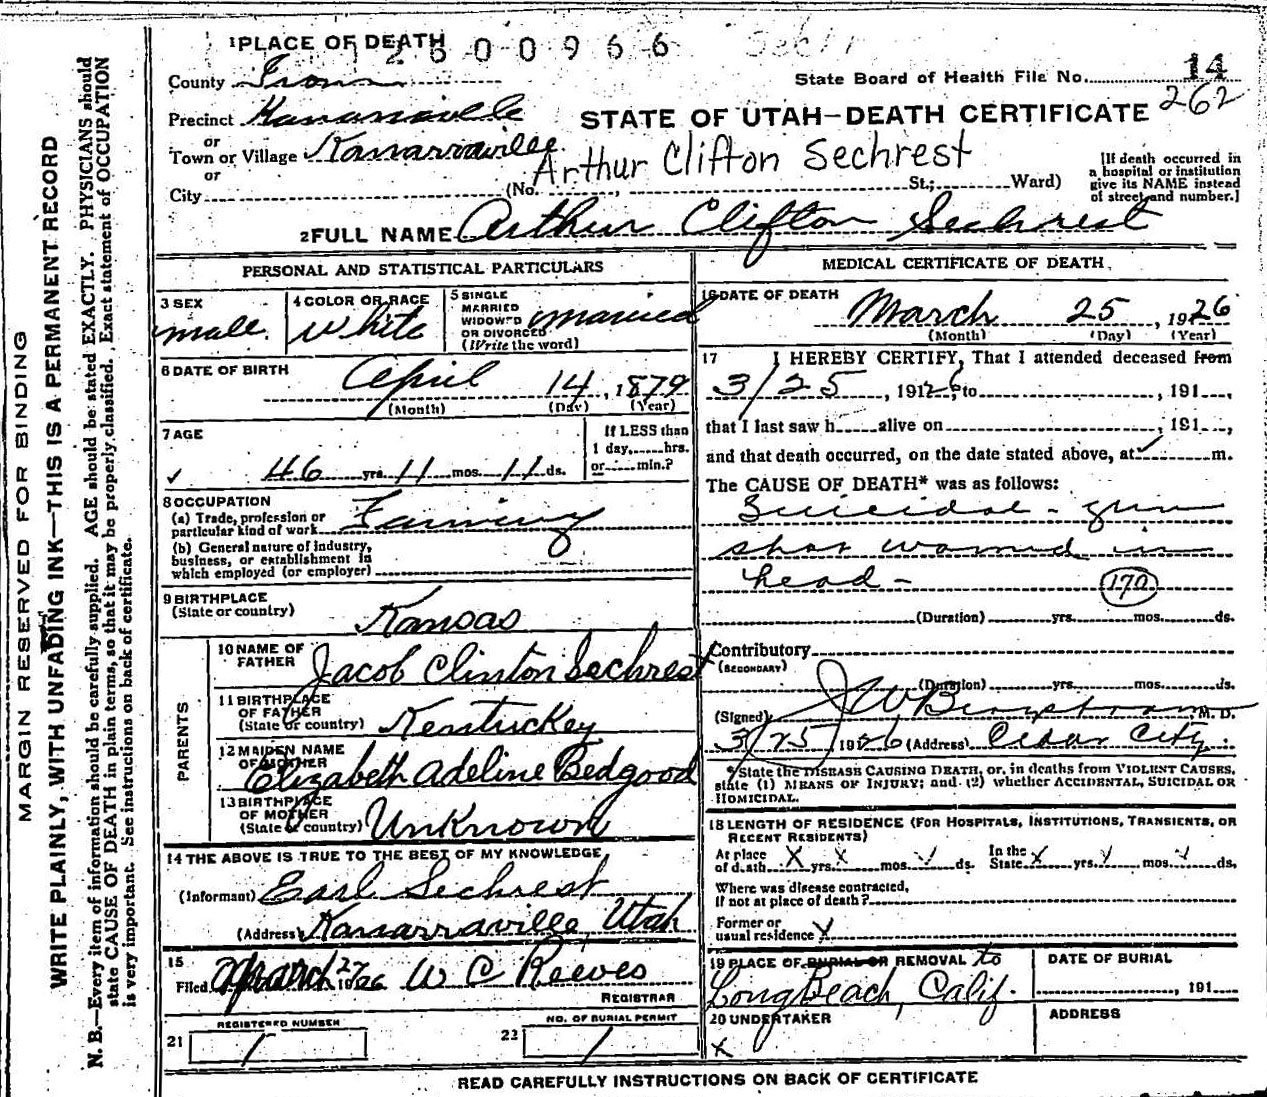 1 PLACE OF DEATH
2600966
County Iron
State Board of Health File No. 14
262
Precinct Kanarraville
STATE OF UTAH—DEATH CERTIFICATE
or
Town or Village Kanarraville
Arthur Clifton Sechrest
or
City (No. , St.; Ward)
[If death occurred in
a hospital or institution
give its NAME instead
of street and number.]
2 FULL NAME Arthur Clifton Sechrest
PERSONAL AND STATISTICAL PARTICULARS
3 SEX
male
4 COLOR OR RACE
White
5 SINGLE
MARRIED
WIDOWED
OR DIVORCED
(Write the word)
married
6 DATE OF BIRTH
April 14, 1879
(Month) (Day) (Year)
7 AGE
46 yrs. 11 mos. 11 ds.
If LESS than
1 day, hrs.
or min.?
8 OCCUPATION
(a) Trade, profession or
particular kind of work Farming
(b) General nature of industry,
business, or establishment in
which employed (or employer)
9 BIRTHPLACE
(State or country)
Kansas
PARENTS
10 NAME OF
FATHER
Jacob Clinton Sechrest
11 BIRTHPLACE
OF FATHER
(State or country)
Kentuckey
12 MAIDEN NAME
OF MOTHER
Elizabeth Adeline Bedgood
13 BIRTHPLACE
OF MOTHER
(State or country)
Unknown
14 THE ABOVE IS TRUE TO THE BEST OF MY KNOWLEDGE
(Informant) Earl Sechrest
(Address) Kanarraville, Utah
15
Filed March 27 1926 W C Reeves
REGISTRAR
21 REGISTERED NUMBER
1
22 NO. OF BURIAL PERMIT
1
MEDICAL CERTIFICATE OF DEATH
16 DATE OF DEATH
March 25, 1926
(Month) (Day) (Year)
17 I HEREBY CERTIFY, That I attended deceased from
3/25, 1926, to , 191
that I last saw h alive on , 191 ,
and that death occurred, on the date stated above, at m.
The CAUSE OF DEATH* was as follows:
Suicidal - gun
shot wound in
head -
170
(Duration) yrs. mos. ds.
Contributory
(SECONDARY)
(Duration) yrs. mos. ds.
(Signed) J W Bergstrom M. D.
3/25 1926 (Address) Cedar City
*State the DISEASE CAUSING DEATH, or, in deaths from VIOLENT CAUSES,
state (1) MEANS OF INJURY; and (2) whether ACCIDENTAL, SUICIDAL OR
HOMICIDAL.
18 LENGTH OF RESIDENCE (FOR HOSPITALS, INSTITUTIONS, TRANSIENTS, OR
RECENT RESIDENTS)
At place
of death X yrs. X mos. ds.
In the
State X yrs. mos. ds.
Where was disease contracted,
if not at place of death?
Former or
usual residence
19 PLACE OF BURIAL OR REMOVAL to
Long Beach, Calif.
DATE OF BURIAL
, 191
20 UNDERTAKER
X
ADDRESS
READ CAREFULLY INSTRUCTIONS ON BACK OF CERTIFICATE
MARGIN RESERVED FOR BINDING
WRITE PLAINLY, WITH UNFADING INK—THIS IS A PERMANENT RECORD
N. B.—Every item of information should be carefully supplied. AGE should be stated EXACTLY. PHYSICIANS should
state CAUSE OF DEATH in plain terms, so that it may be properly classified. Exact statement of OCCUPATION
is very important. See instructions on back of certificate.